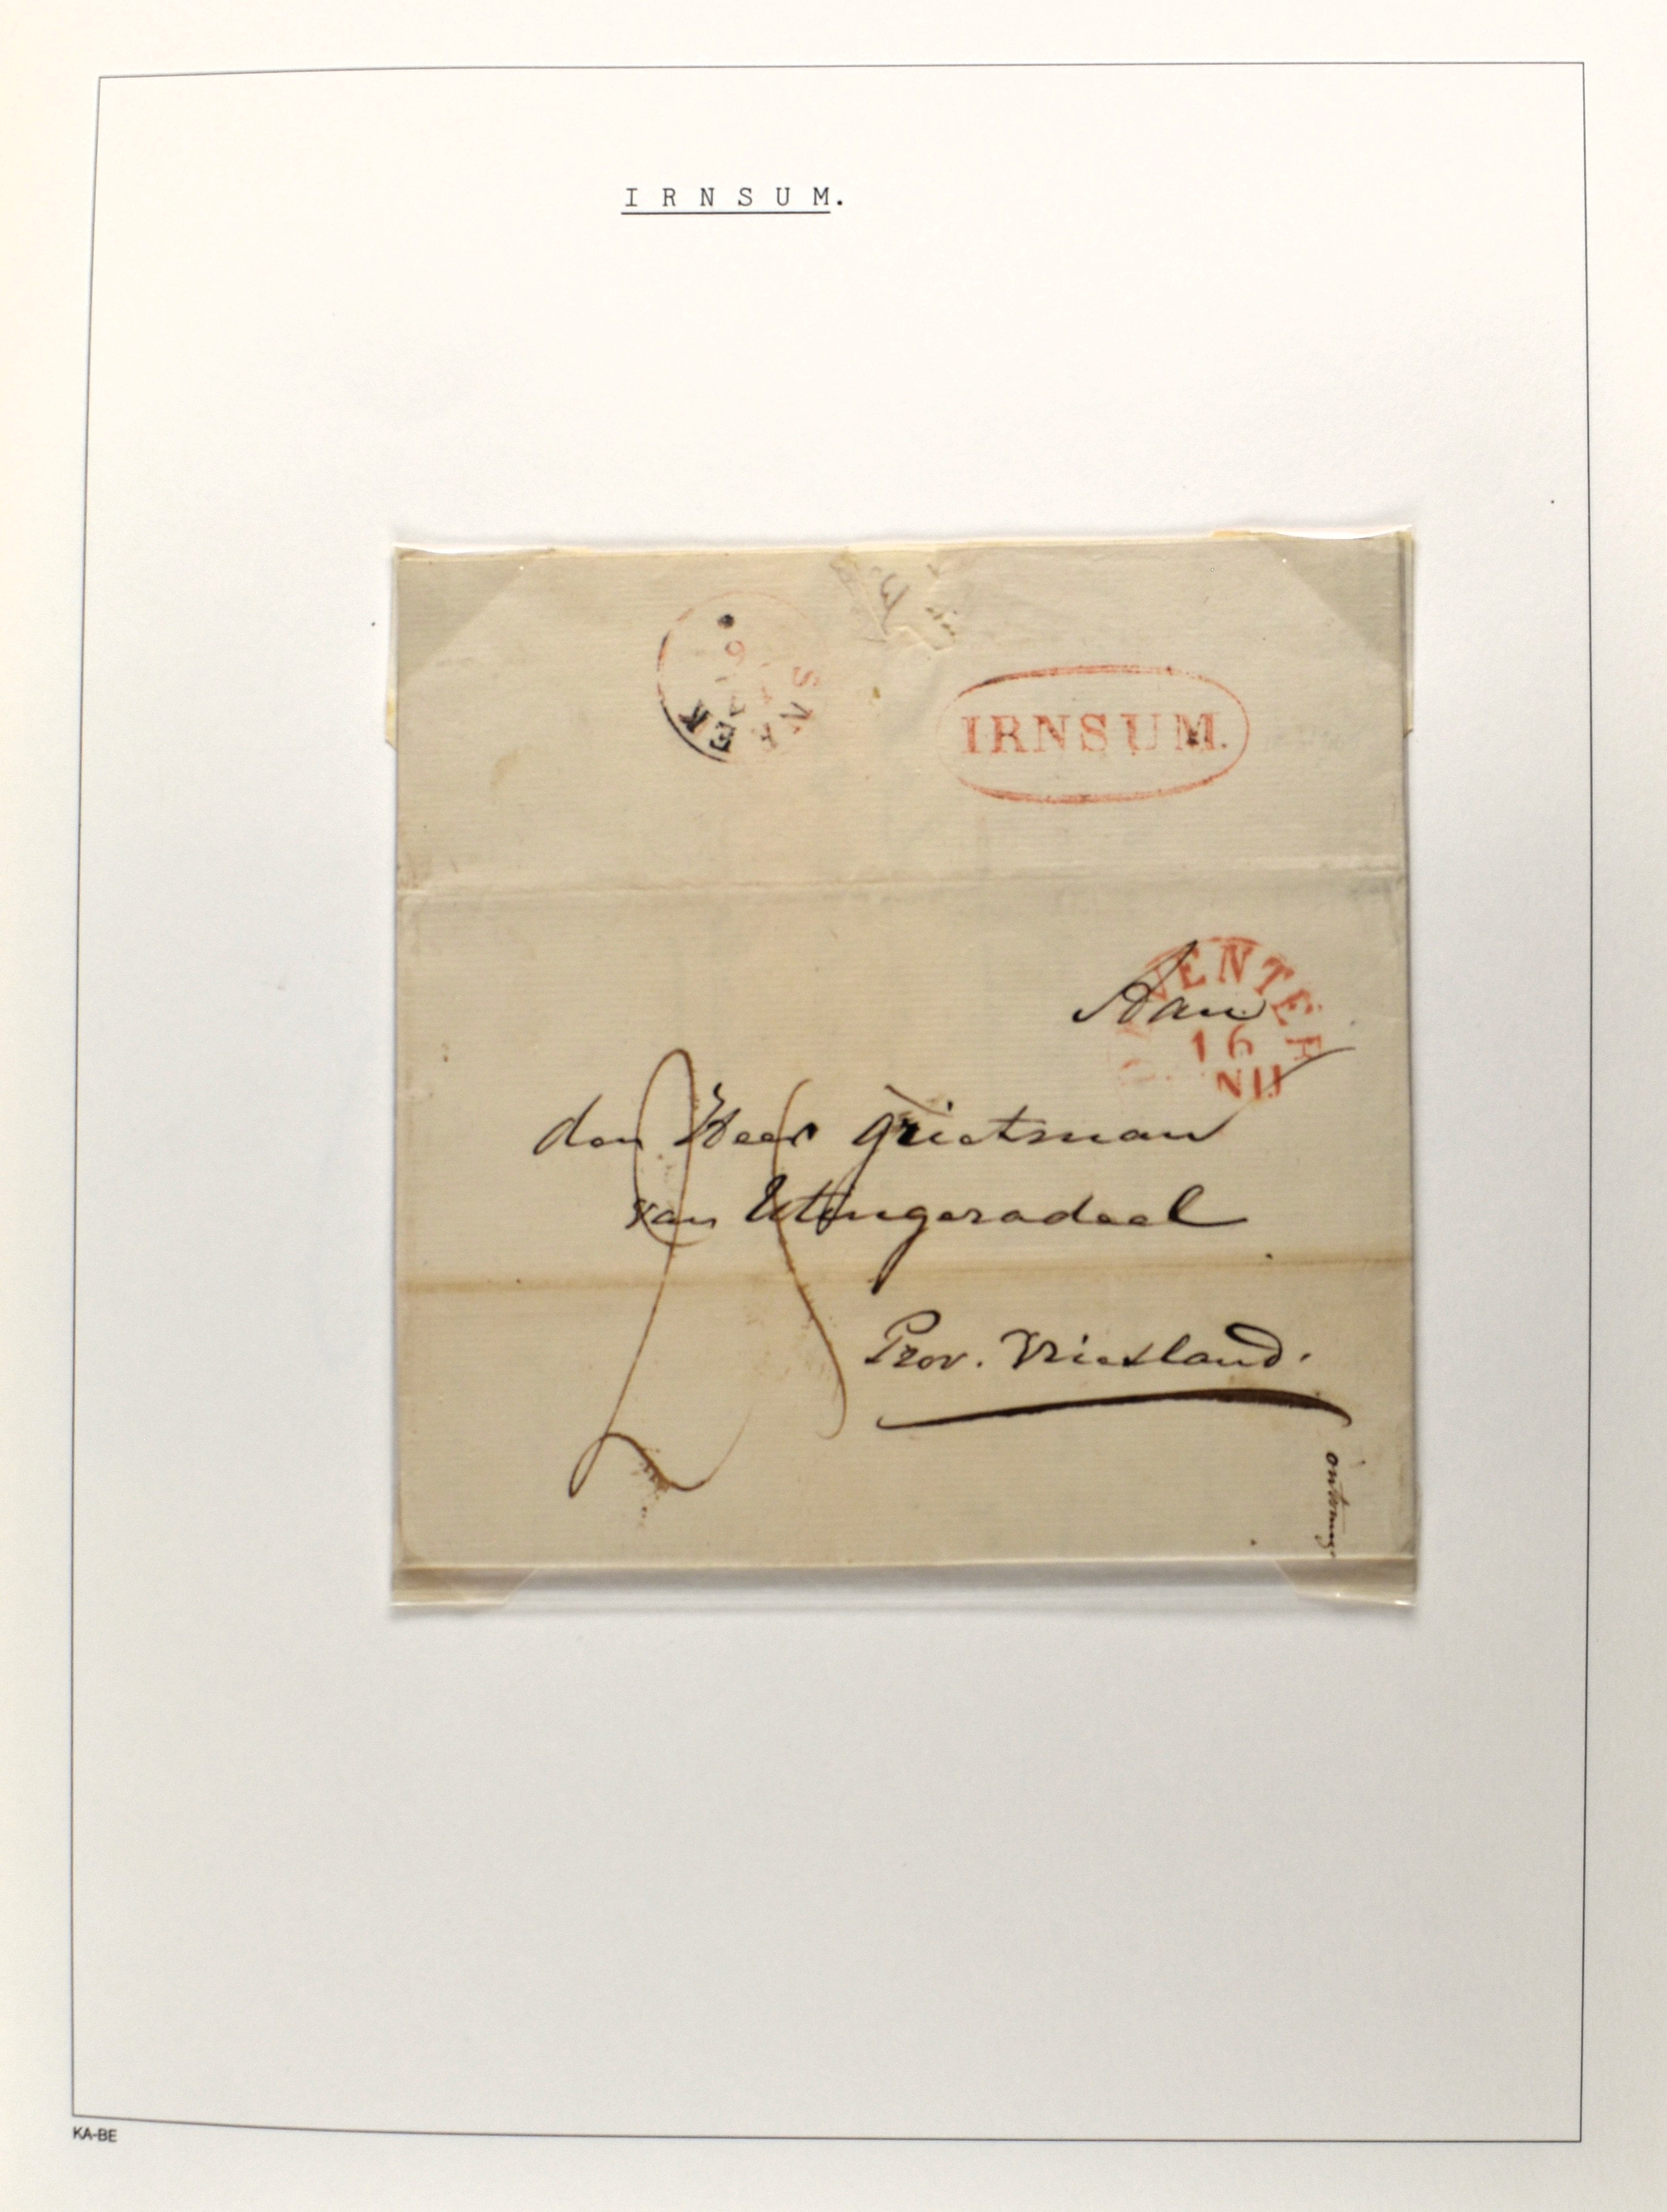 I R N S U M.
SNEEK
IRNSUM.
DEVENTER
16
Aan
den Heer Grietman
van Utingeradeel
Prov. Vriesland.
KA-BE